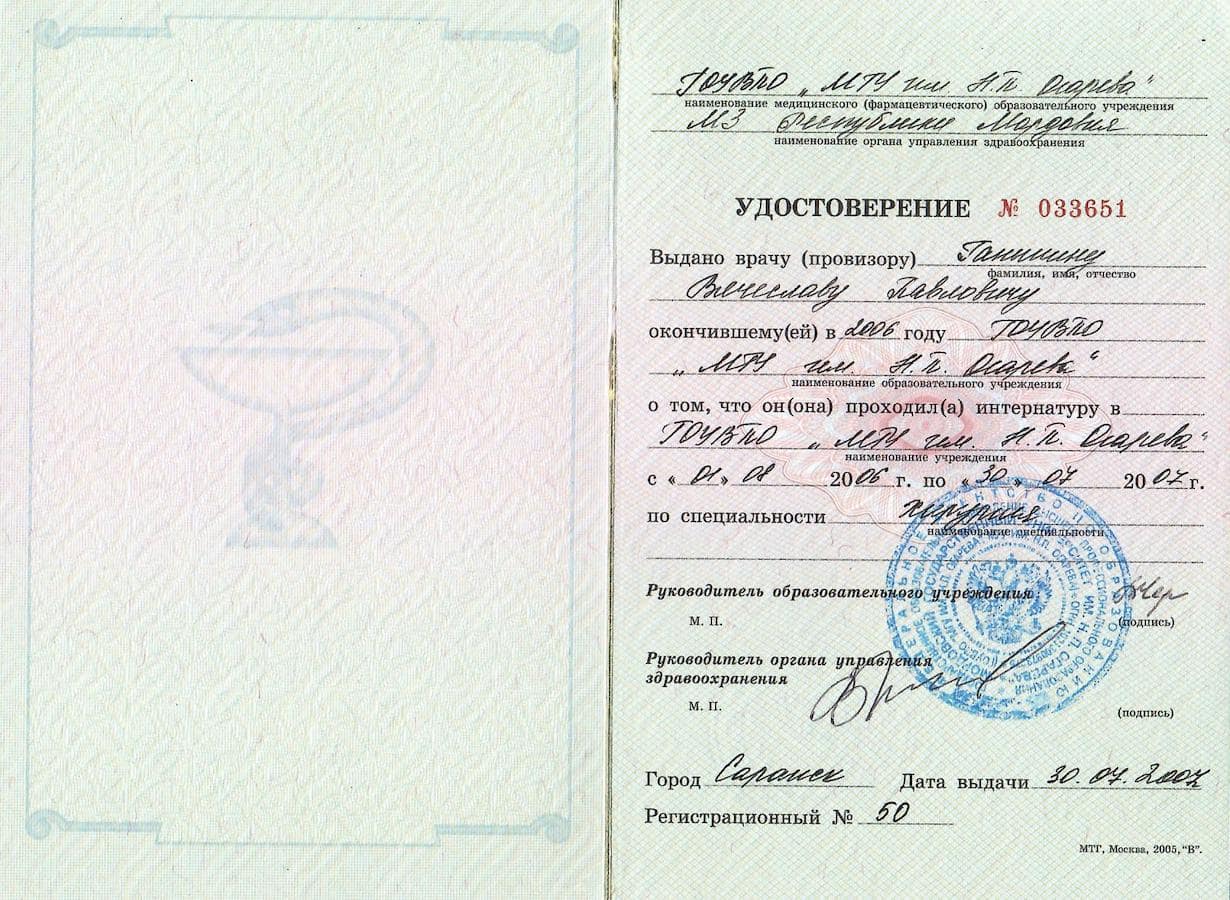 ГОУВПО „МГУ им. Н.П. Огарева"
наименование медицинского (фармацевтического) образовательного учреждения
МЗ Республики Мордовия
наименование органа управления здравоохранения
УДОСТОВЕРЕНИЕ № 033651
Выдано врачу (провизору) Ганшину
фамилия, имя, отчество
Вячеславу Павловичу
окончившему(ей) в 2006 году ГОУВПО
„МГУ им. Н.П. Огарева"
наименование образовательного учреждения
о том, что он(она) проходил(а) интернатуру в
ГОУВПО „МГУ им. Н.П. Огарева"
наименование учреждения
с «01» 08 2006 г. по «30» 07 2007 г.
по специальности хирургия
наименование специальности
Руководитель образовательного учреждения
М. П.
(подпись)
Руководитель органа управления
здравоохранения
М. П.
(подпись)
Город Саранск Дата выдачи 30.07.2007
Регистрационный № 50
МТГ, Москва, 2005, "В".